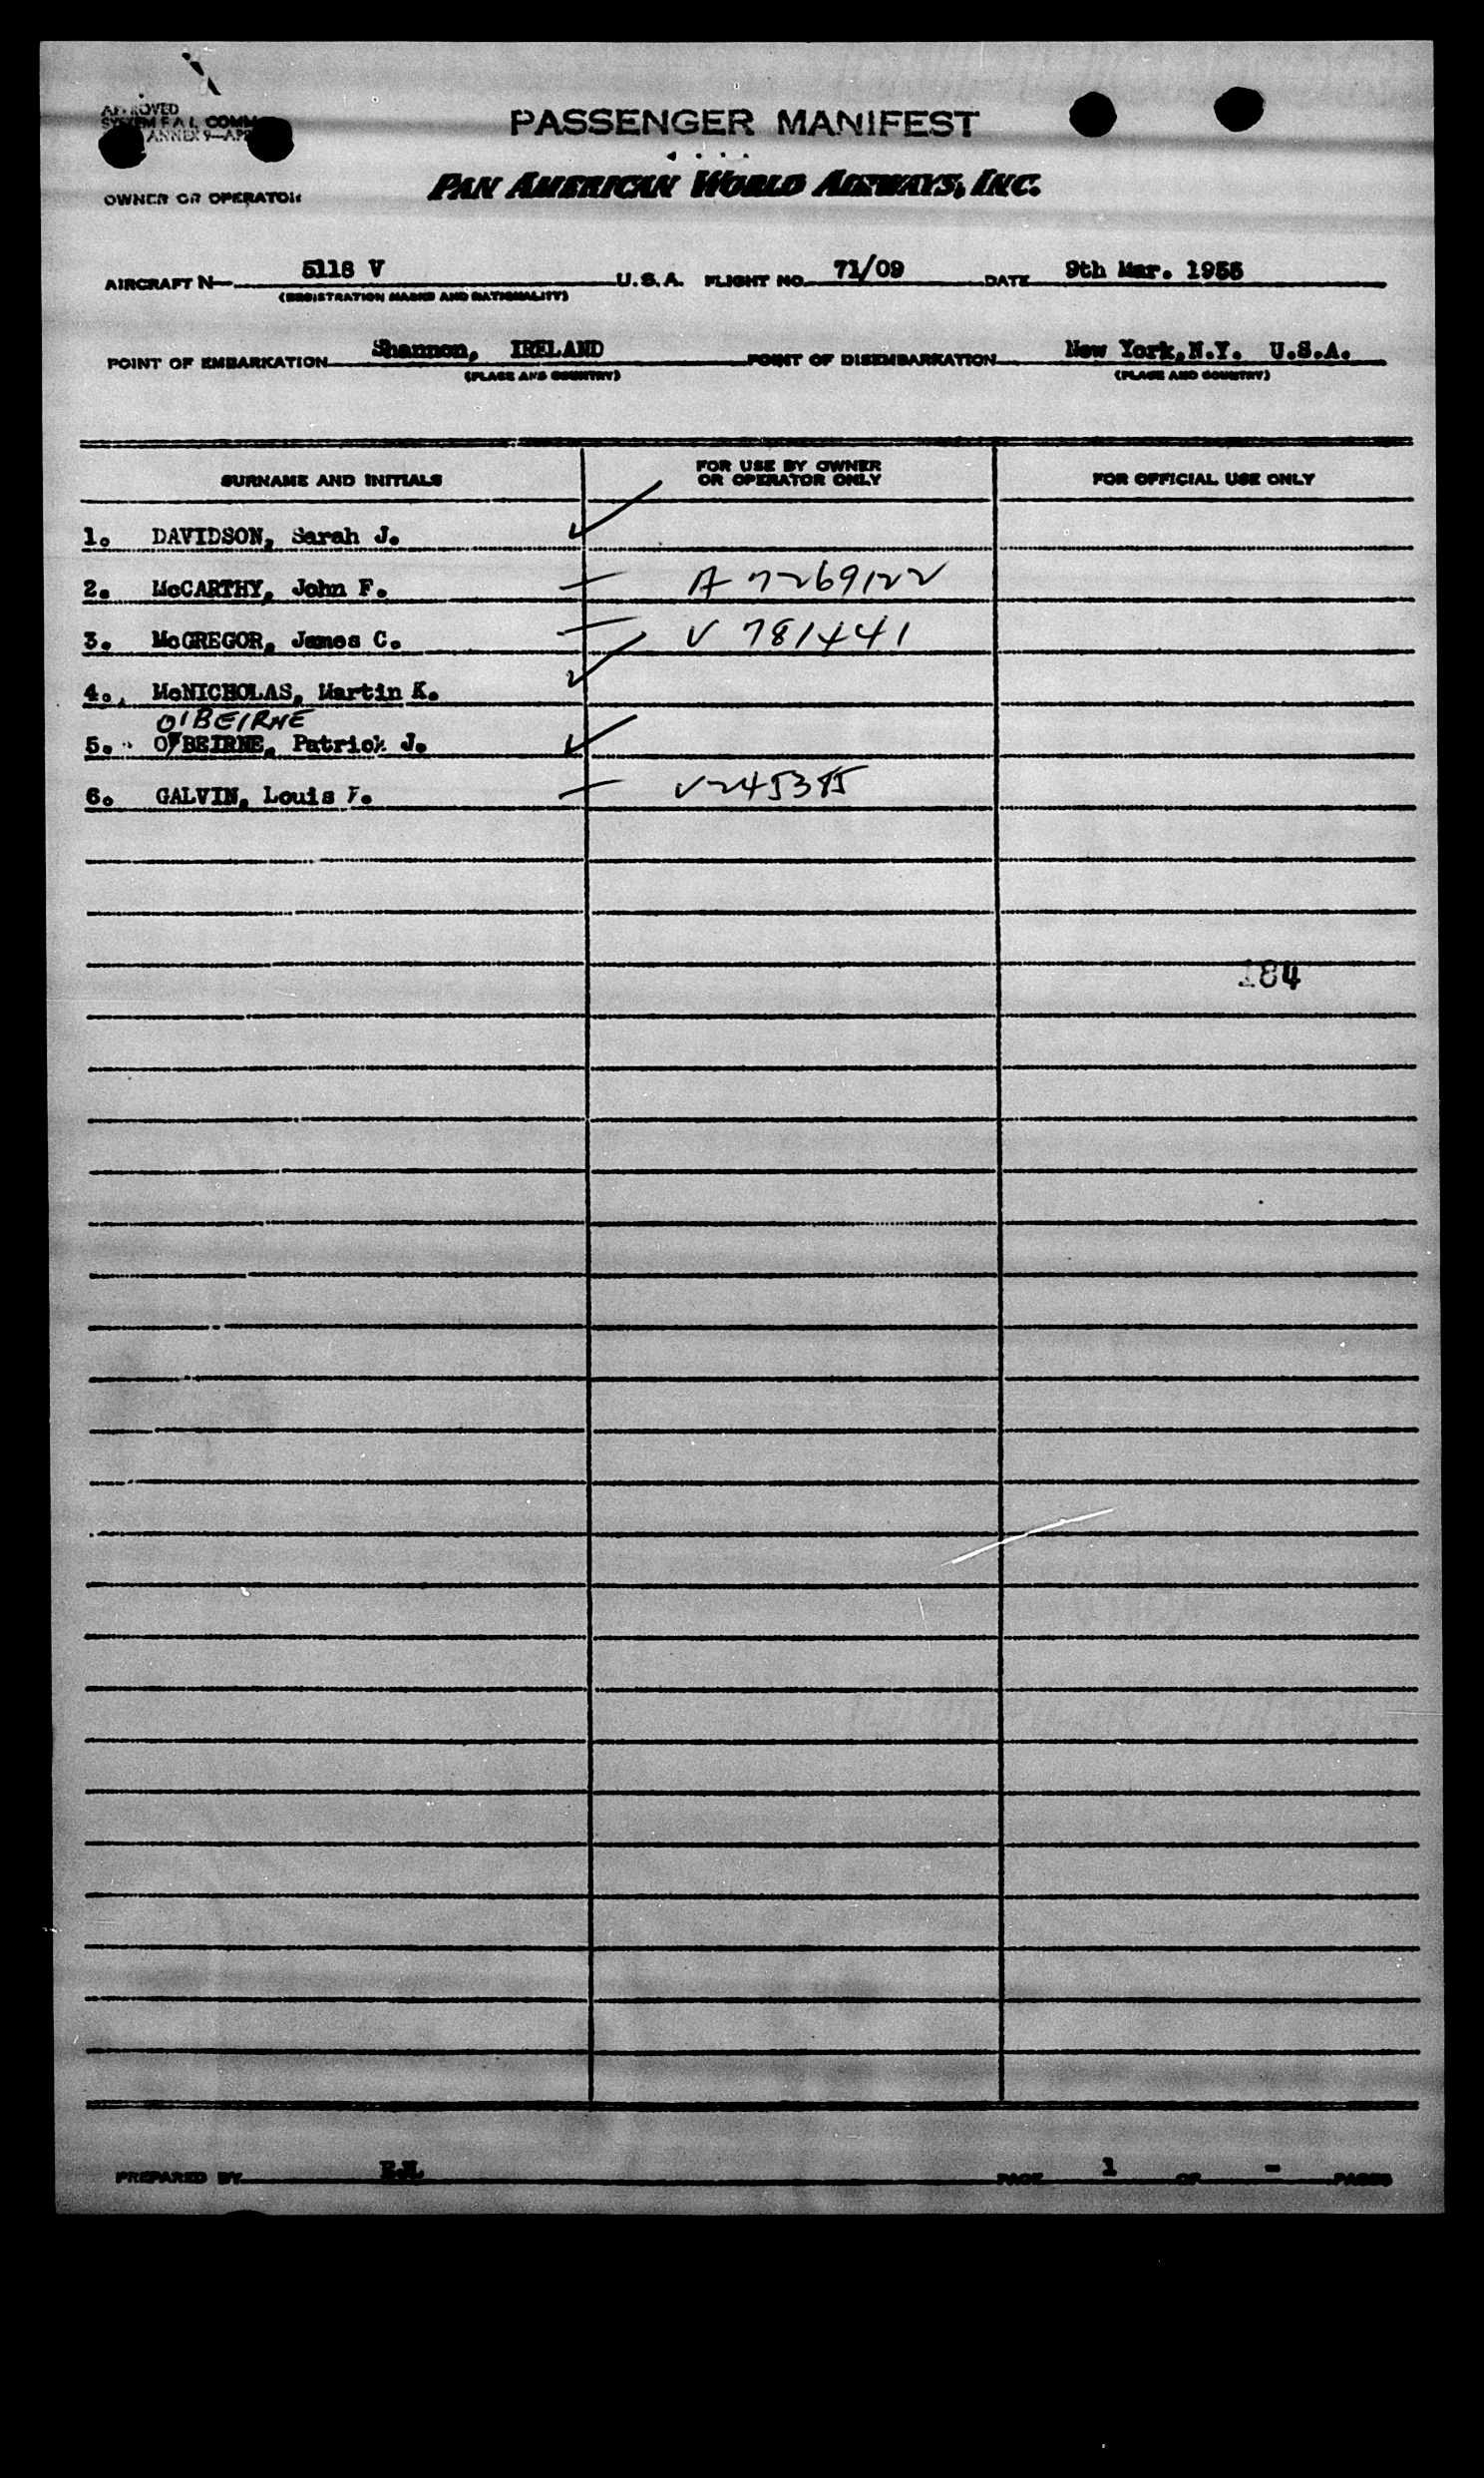 APPROVED
SYSTEM F A L COMM
ANNEX 9—APP
PASSENGER MANIFEST
OWNER OR OPERATOR PAN AMERICAN WORLD AIRWAYS, INC.
AIRCRAFT N 5118 V U.S.A. FLIGHT NO. 71/09 DATE 9th Mar. 1955
(REGISTRATION MARKS AND NATIONALITY)
POINT OF EMBARKATION Shannon, IRELAND POINT OF DISEMBARKATION New York,N.Y. U.S.A.
(PLACE AND COUNTRY) (PLACE AND COUNTRY)
SURNAME AND INITIALS FOR USE BY OWNER OR OPERATOR ONLY FOR OFFICIAL USE ONLY
1. DAVIDSON, Sarah J. ✓
2. McCARTHY, John F. — A 7269122
3. McGREGOR, James C. — V 781441
4. McNICHOLAS, Martin K. ✓
O'BEIRNE
5. O'BEIRNE, Patrick J. ✓
6. GALVIN, Louis F. — V245385
184
PREPARED BY PAGE 1 OF - PAGES